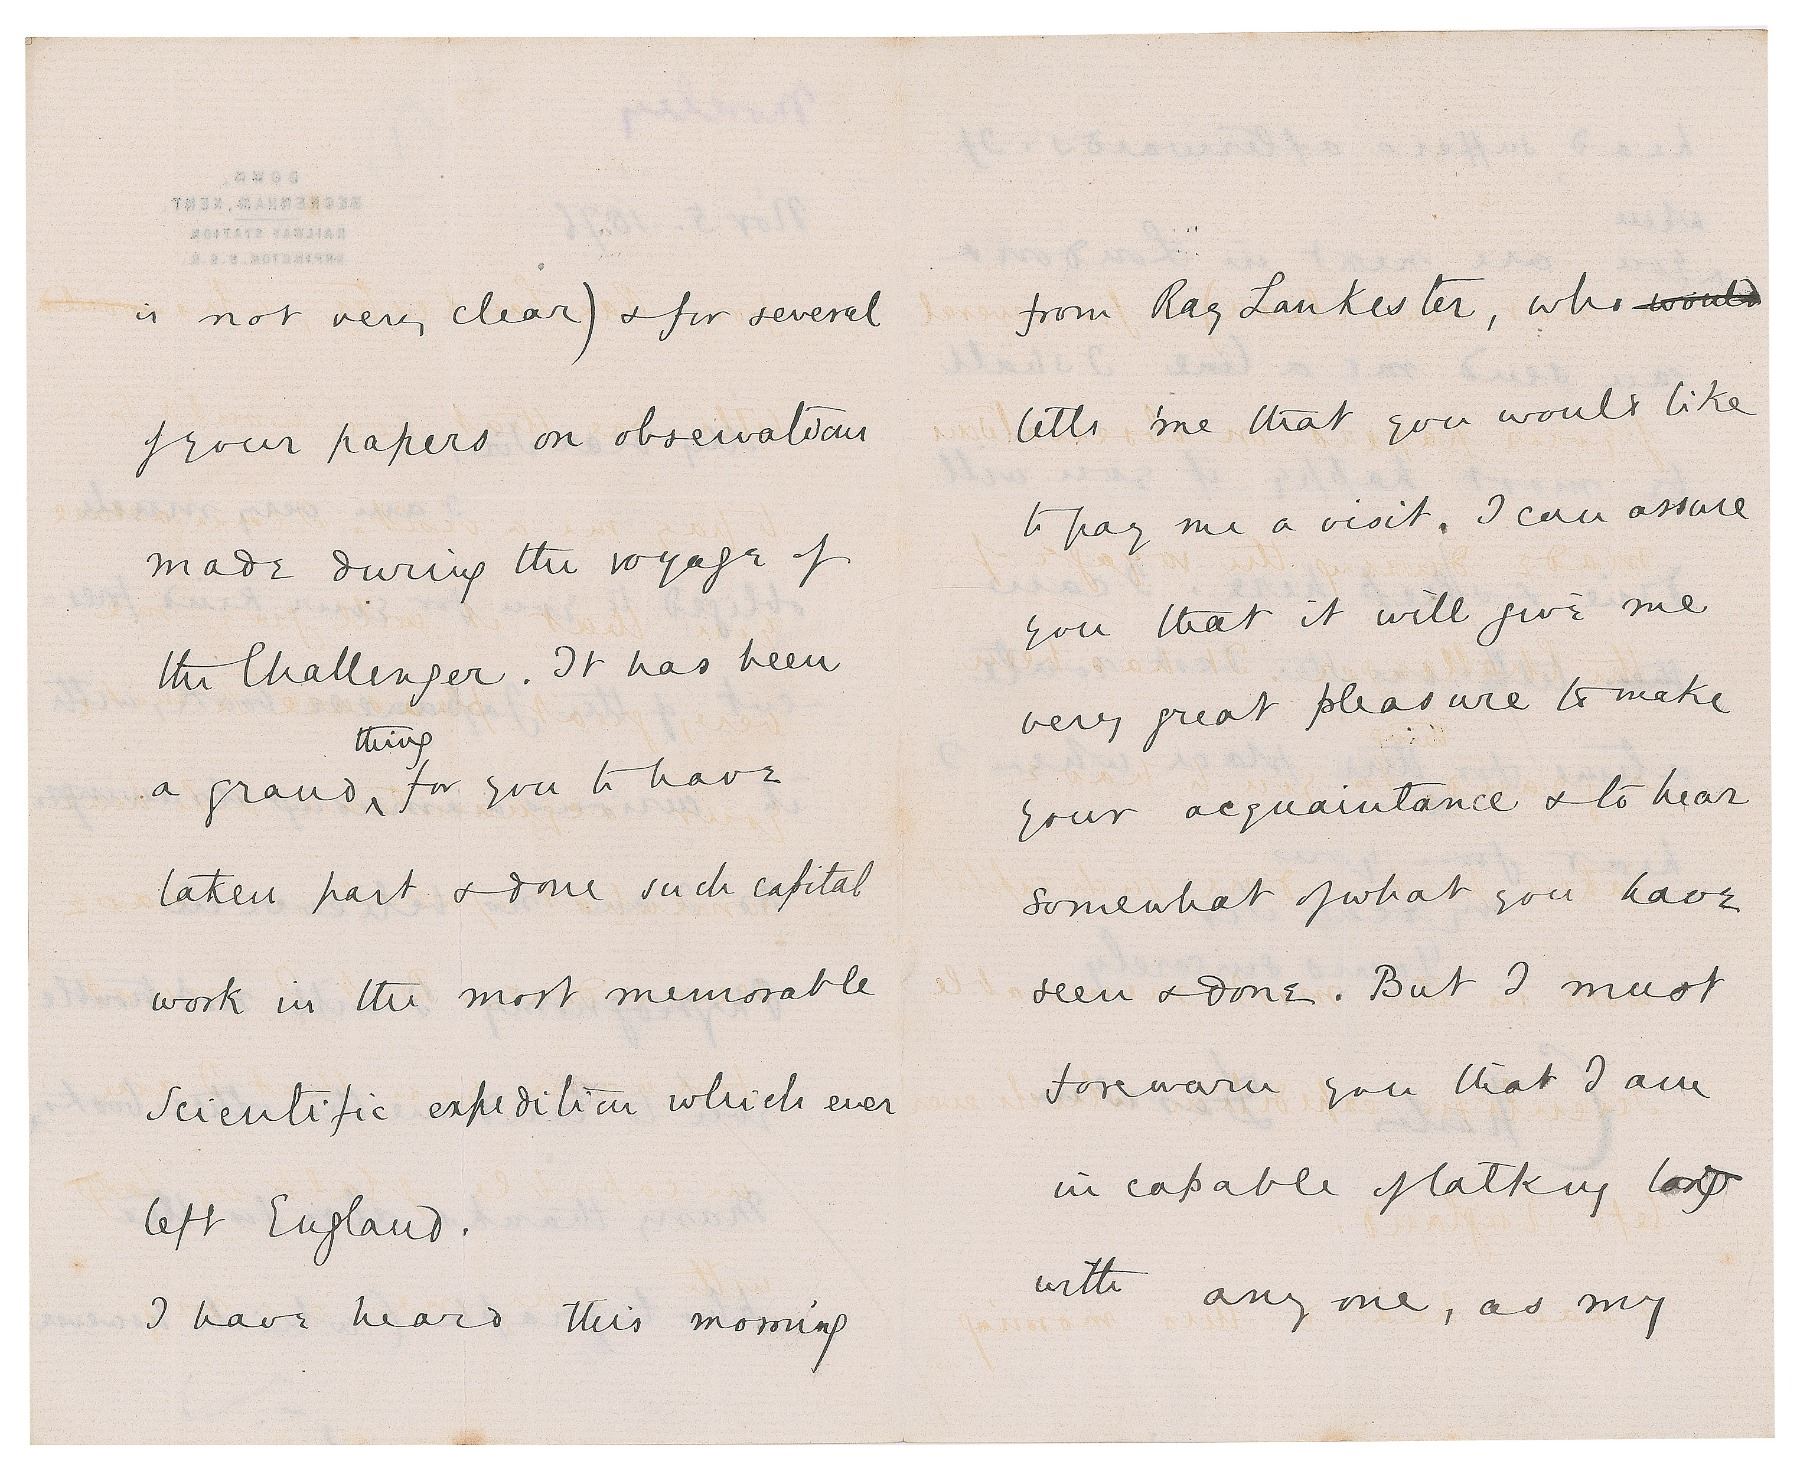 is not very clear) & for several
of your papers on observations
made during the voyage of
the Challenger. It has been
thing
a grand, for you to have
taken part & done such capital
work in the most memorable
Scientific expedition which ever
left England.
I have heard this morning
from Ray Lankester, who would
tells me that you would like
to pay me a visit. I can assure
you that it will give me
very great pleasure to make
your acquaintance & to hear
somewhat of what you have
seen & done. But I must
forewarn you that I am
incapable of talking long
with any one, as my
DOWN,
BECKENHAM, KENT.
RAILWAY STATION
ORPINGTON. S.E.R.
Nov 5. 1876